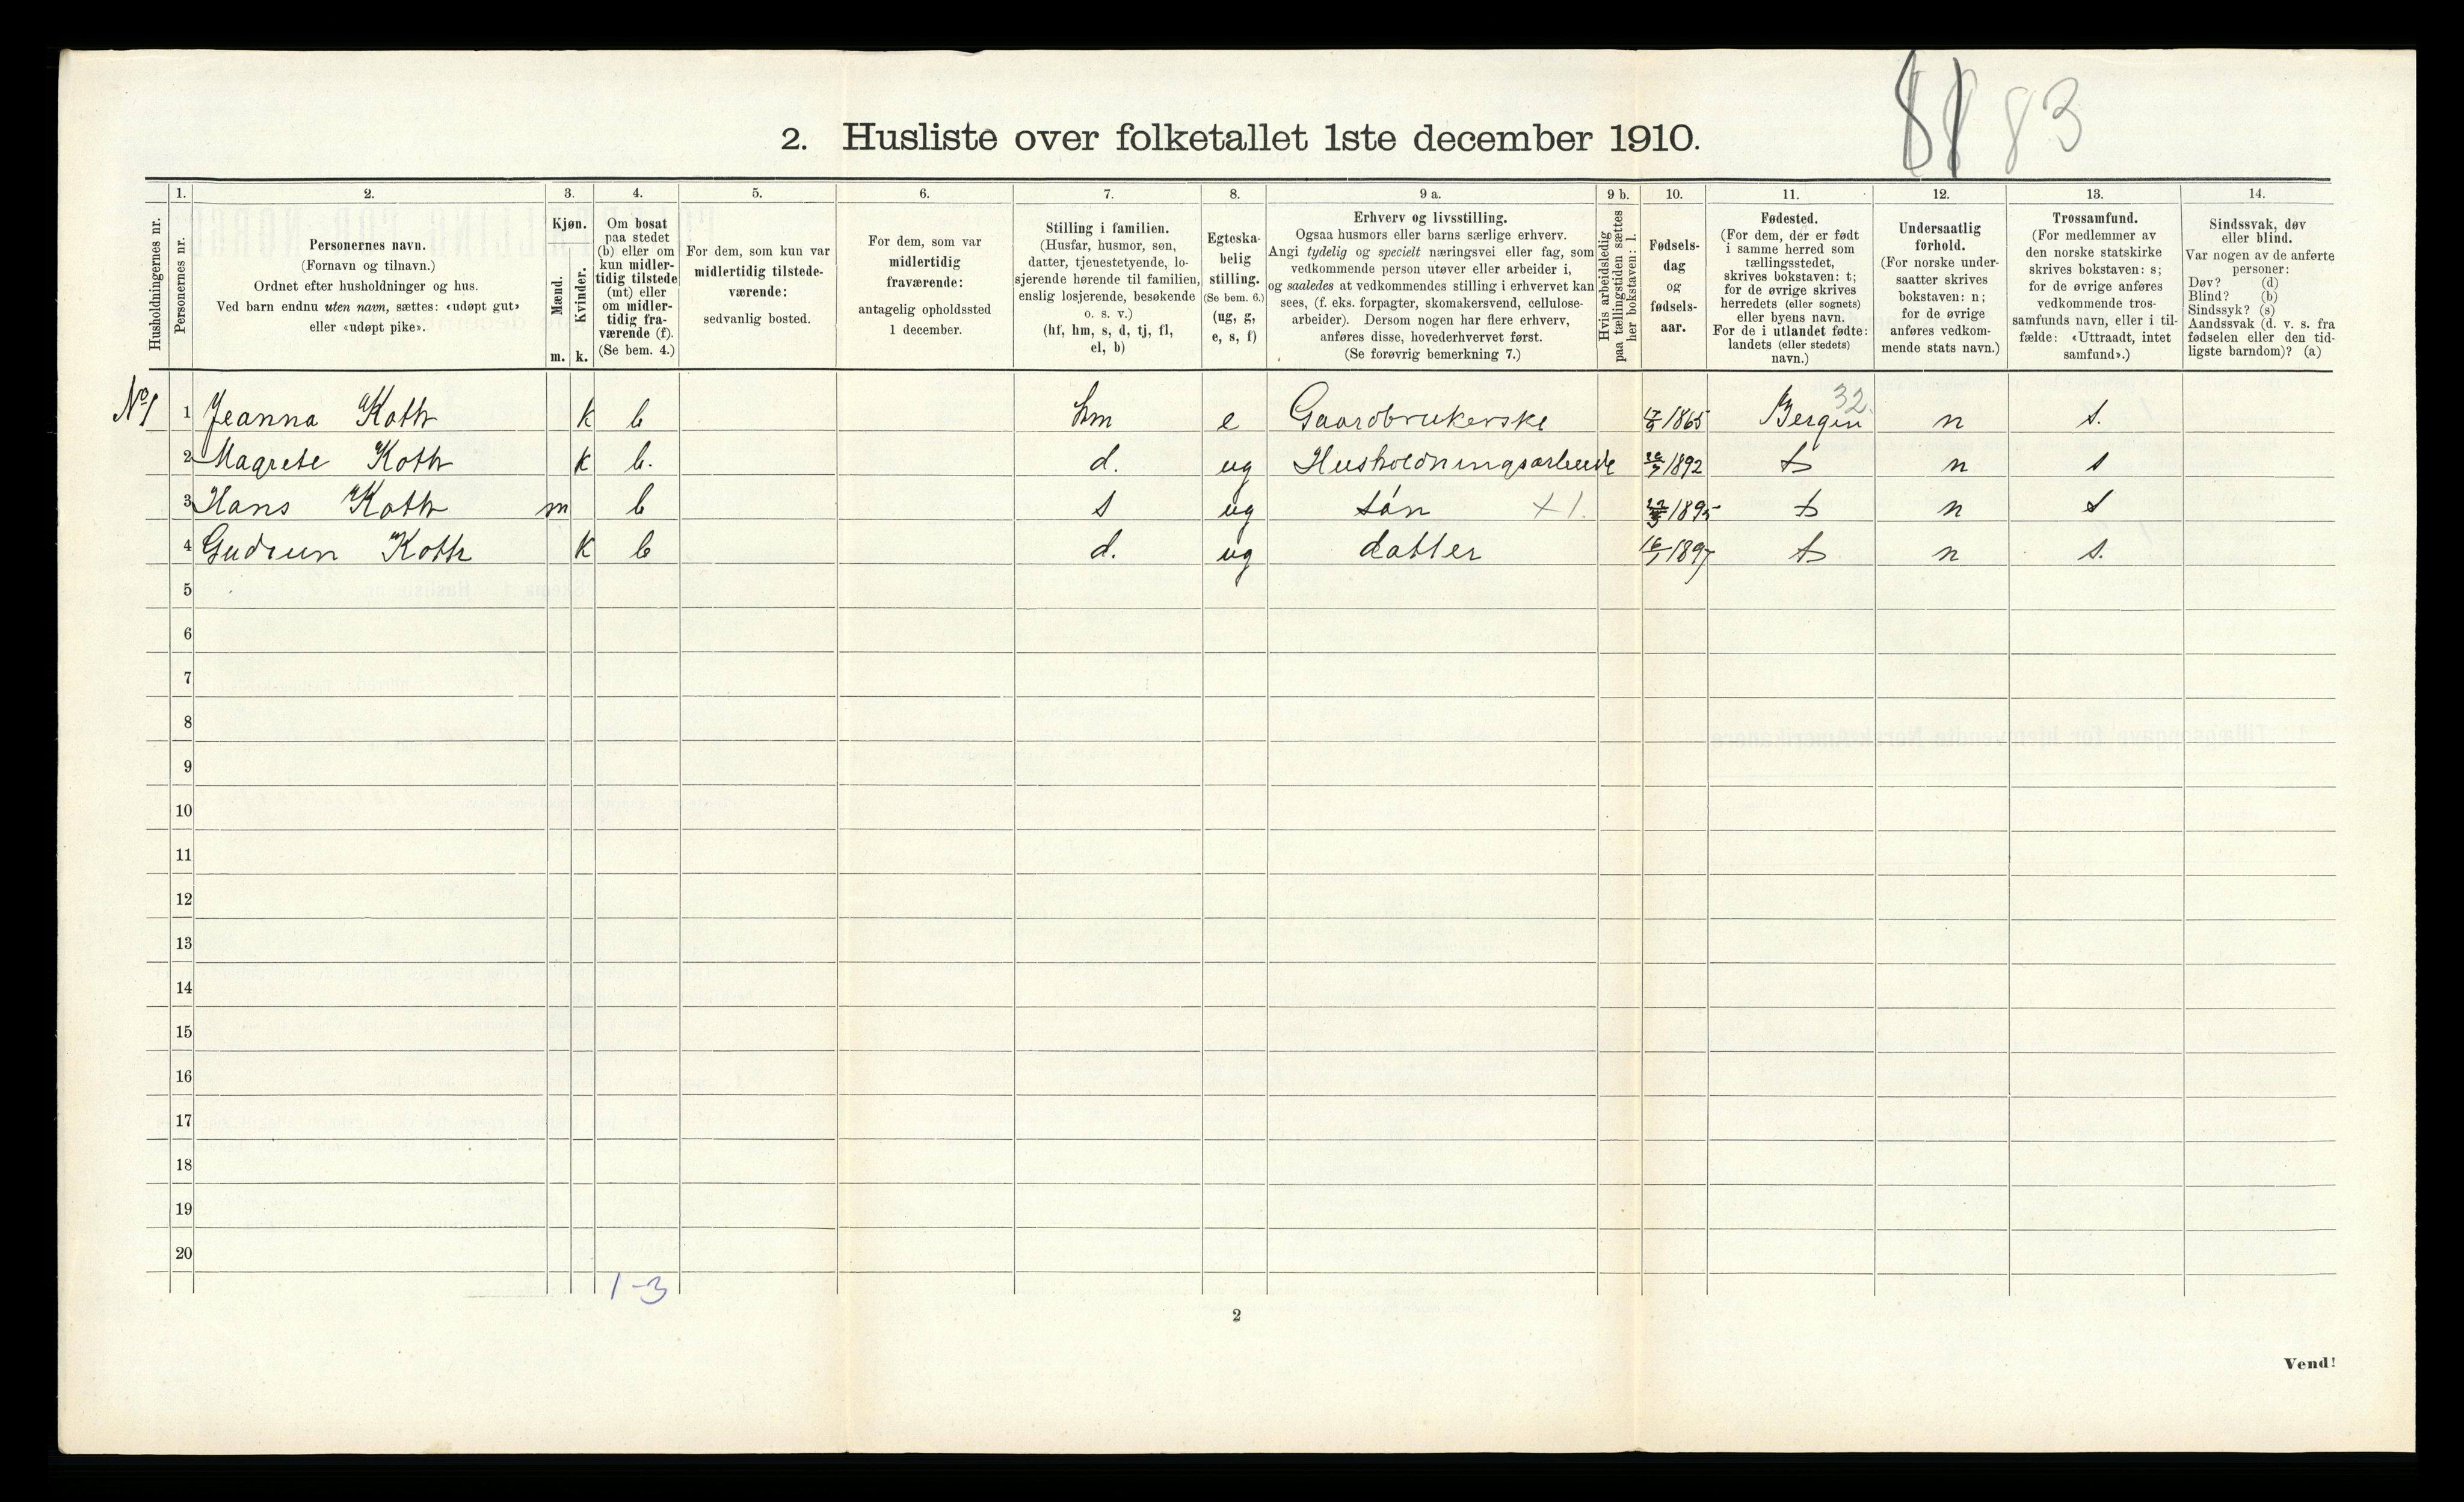 83
2. Husliste over folketallet 1ste december 1910.
Husholdningernes nr.
1.
Personernes nr.
2.
Personernes navn.
(Fornavn og tilnavn.)
Ordnet efter husholdninger og hus.
Ved barn endnu uten navn, sættes: «udøpt gut»
eller «udøpt pike».
3.
Kjøn.
Mænd.
Kvinder.
m. k.
4.
Om bosat
paa stedet
(b) eller om
kun midler-
tidig tilstede
(mt) eller
om midler-
tidig fra-
værende (f).
(Se bem. 4.)
5.
For dem, som kun var
midlertidig tilstede-
værende:
sedvanlig bosted.
6.
For dem, som var
midlertidig
fraværende:
antagelig opholdssted
1 december.
7.
Stilling i familien.
(Husfar, husmor, søn,
datter, tjenestetyende, lo-
sjerende hørende til familien,
enslig losjerende, besøkende
o. s. v.)
(hf, hm, s, d, tj, fl,
el, b)
8.
Egteska-
belig
stilling.
(Se bem. 6.)
(ug, g,
e, s, f)
9 a.
Erhverv og livsstilling.
Ogsaa husmors eller barns særlige erhverv.
Angi tydelig og specielt næringsvei eller fag, som
vedkommende person utøver eller arbeider i,
og saaledes at vedkommendes stilling i erhvervet kan
sees, (f. eks. forpagter, skomakersvend, cellulose-
arbeider). Dersom nogen har flere erhverv,
anføres disse, hovederhvervet først.
(Se forøvrig bemerkning 7.)
9 b.
Hvis arbeidsledig
paa tællingstiden sættes
her bokstaven: l.
10.
Fødsels-
dag
og
fødsels-
aar.
11.
Fødested.
(For dem, der er født
i samme herred som
tællingsstedet,
skrives bokstaven: t;
for de øvrige skrives
herredets (eller sognets)
eller byens navn.
For de i utlandet fødte:
landets (eller stedets)
navn.)
12.
Undersaatlig
forhold.
(For norske under-
saatter skrives
bokstaven: n;
for de øvrige
anføres vedkom-
mende stats navn.)
13.
Trossamfund.
(For medlemmer av
den norske statskirke
skrives bokstaven: s;
for de øvrige anføres
vedkommende tros-
samfunds navn, eller i til-
fælde: «Uttraadt, intet
samfund».)
14.
Sindssvak, døv
eller blind.
Var nogen av de anførte
personer:
Døv? (d)
Blind? (b)
Sindssyk? (s)
Aandssvak (d. v. s. fra
fødselen eller den tid-
ligste barndom)? (a)
32.
No 1 1 Jeanna Koth k b hm e Gaardbrukerske 1865 Bergen n s.
2 Magrete Koth k b. d. ug Husholdningsarbeide 1892 t n s
3 Hans Koth m b s ug søn x 1. 1895 t n s
4 Gudrun Koth k b d. ug datter 1897 t n s.
5
6
7
8
9
10
11
12
13
14
15
16
17
18
19
20
1-3
2
Vend!